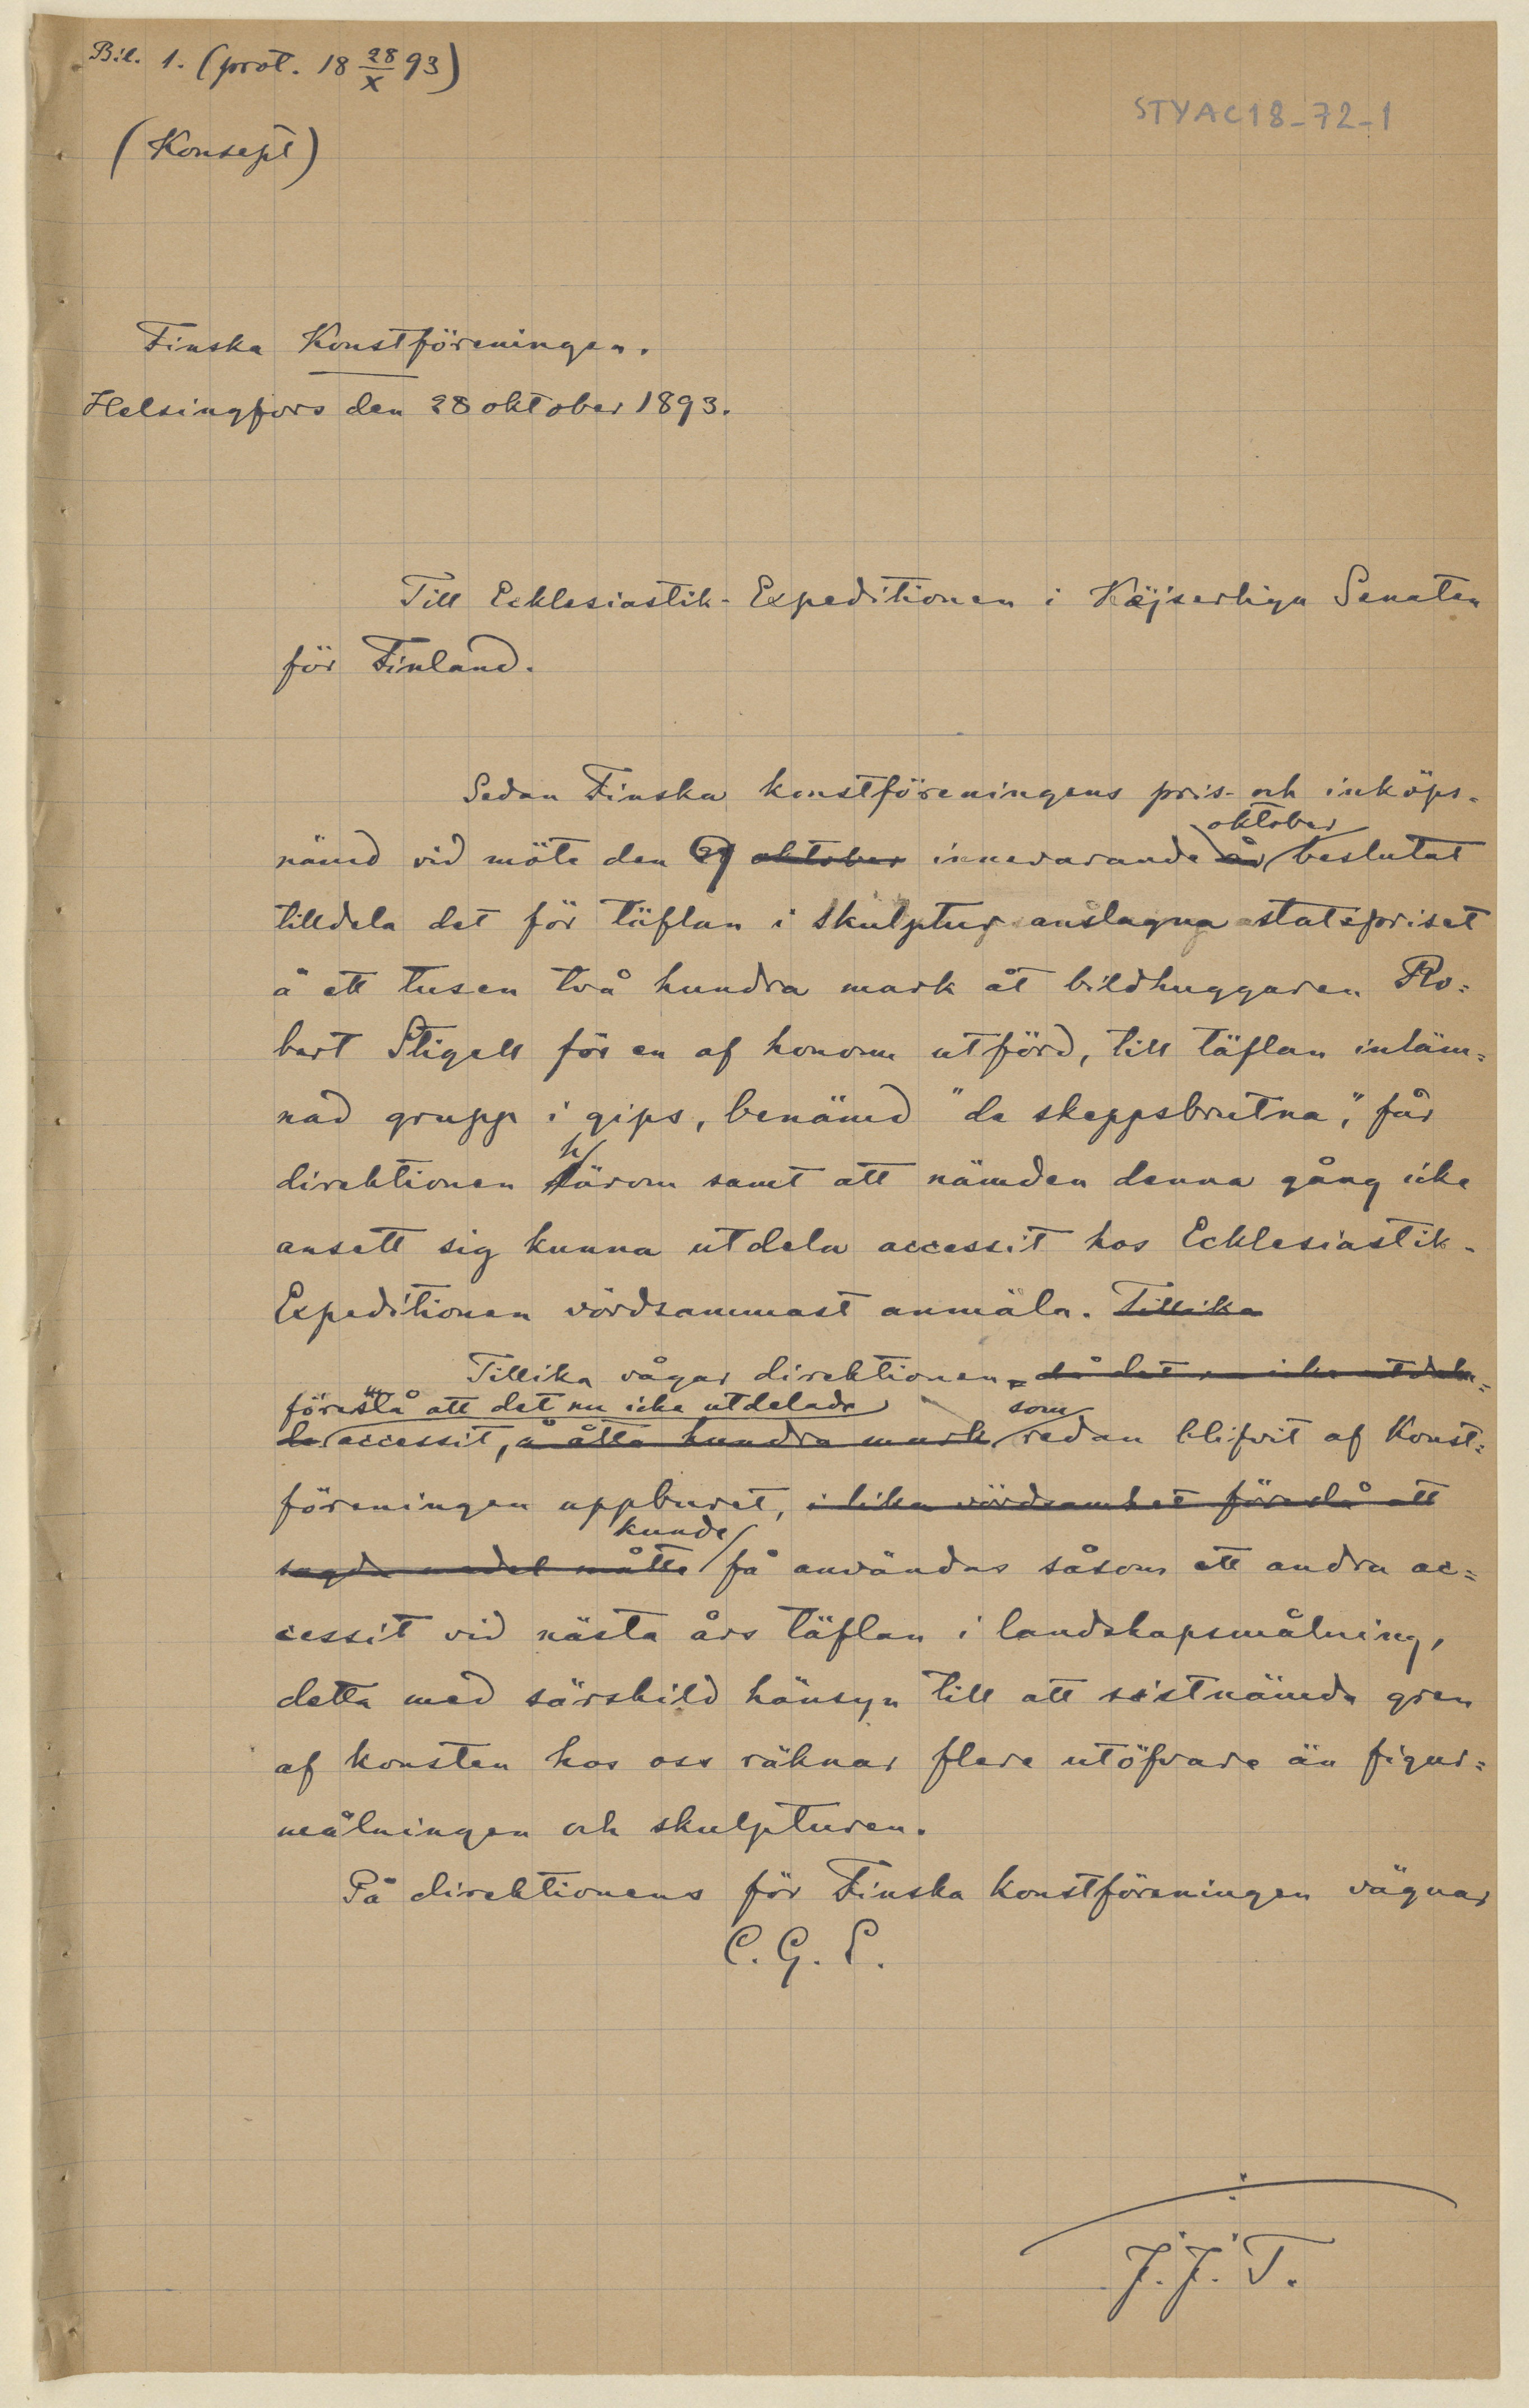 Bil. 1. (prot. 18 28/X 93)
STYAC18-72-1
(Konsept)
Finska Konstföreningen.
Helsingfors den 28 oktober 1893.
Till Ecklesiastik-Expeditionen i Kejserliga Senaten
för Finland.
Sedan Finska konstföreningens pris- och inköps-
oktober
nämd vid möte den oktober innevarande år beslutat
tilldela det för täflan i skulptur anslagna statspriset
à ett tusen två hundra mark åt bildhuggaren Ro=
bert Stigell för en af honom utförd, till täflan inläm=
nad grupp i gips, benämd "de skeppsbrutna", får
h
direktionen därom samt att nämden denna gång icke
ansett sig kunna utdela accessit hos Ecklesiastik-
Expeditionen vördsammast anmäla. Tillika
Tillika vågar direktionen, då det nu icke utdela=
föreslå att det nu icke utdelade som
de accessit, à åtta hundra mark redan blifvit af Konst=
föreningen uppburet, i lika vördsamhet föreslå att
kunde
sagda medel måtte få användas såsom ett andra ac=
cessit vid nästa års täflan i landskapsmålning,
detta med särskild hänsyn till att sistnämda gren
af konsten hos oss räknar flere utöfvare än figur=
målningen och skulpturen.
På direktionens för Finska konstföreningen vägnar
C. G. E.
J. J. T.